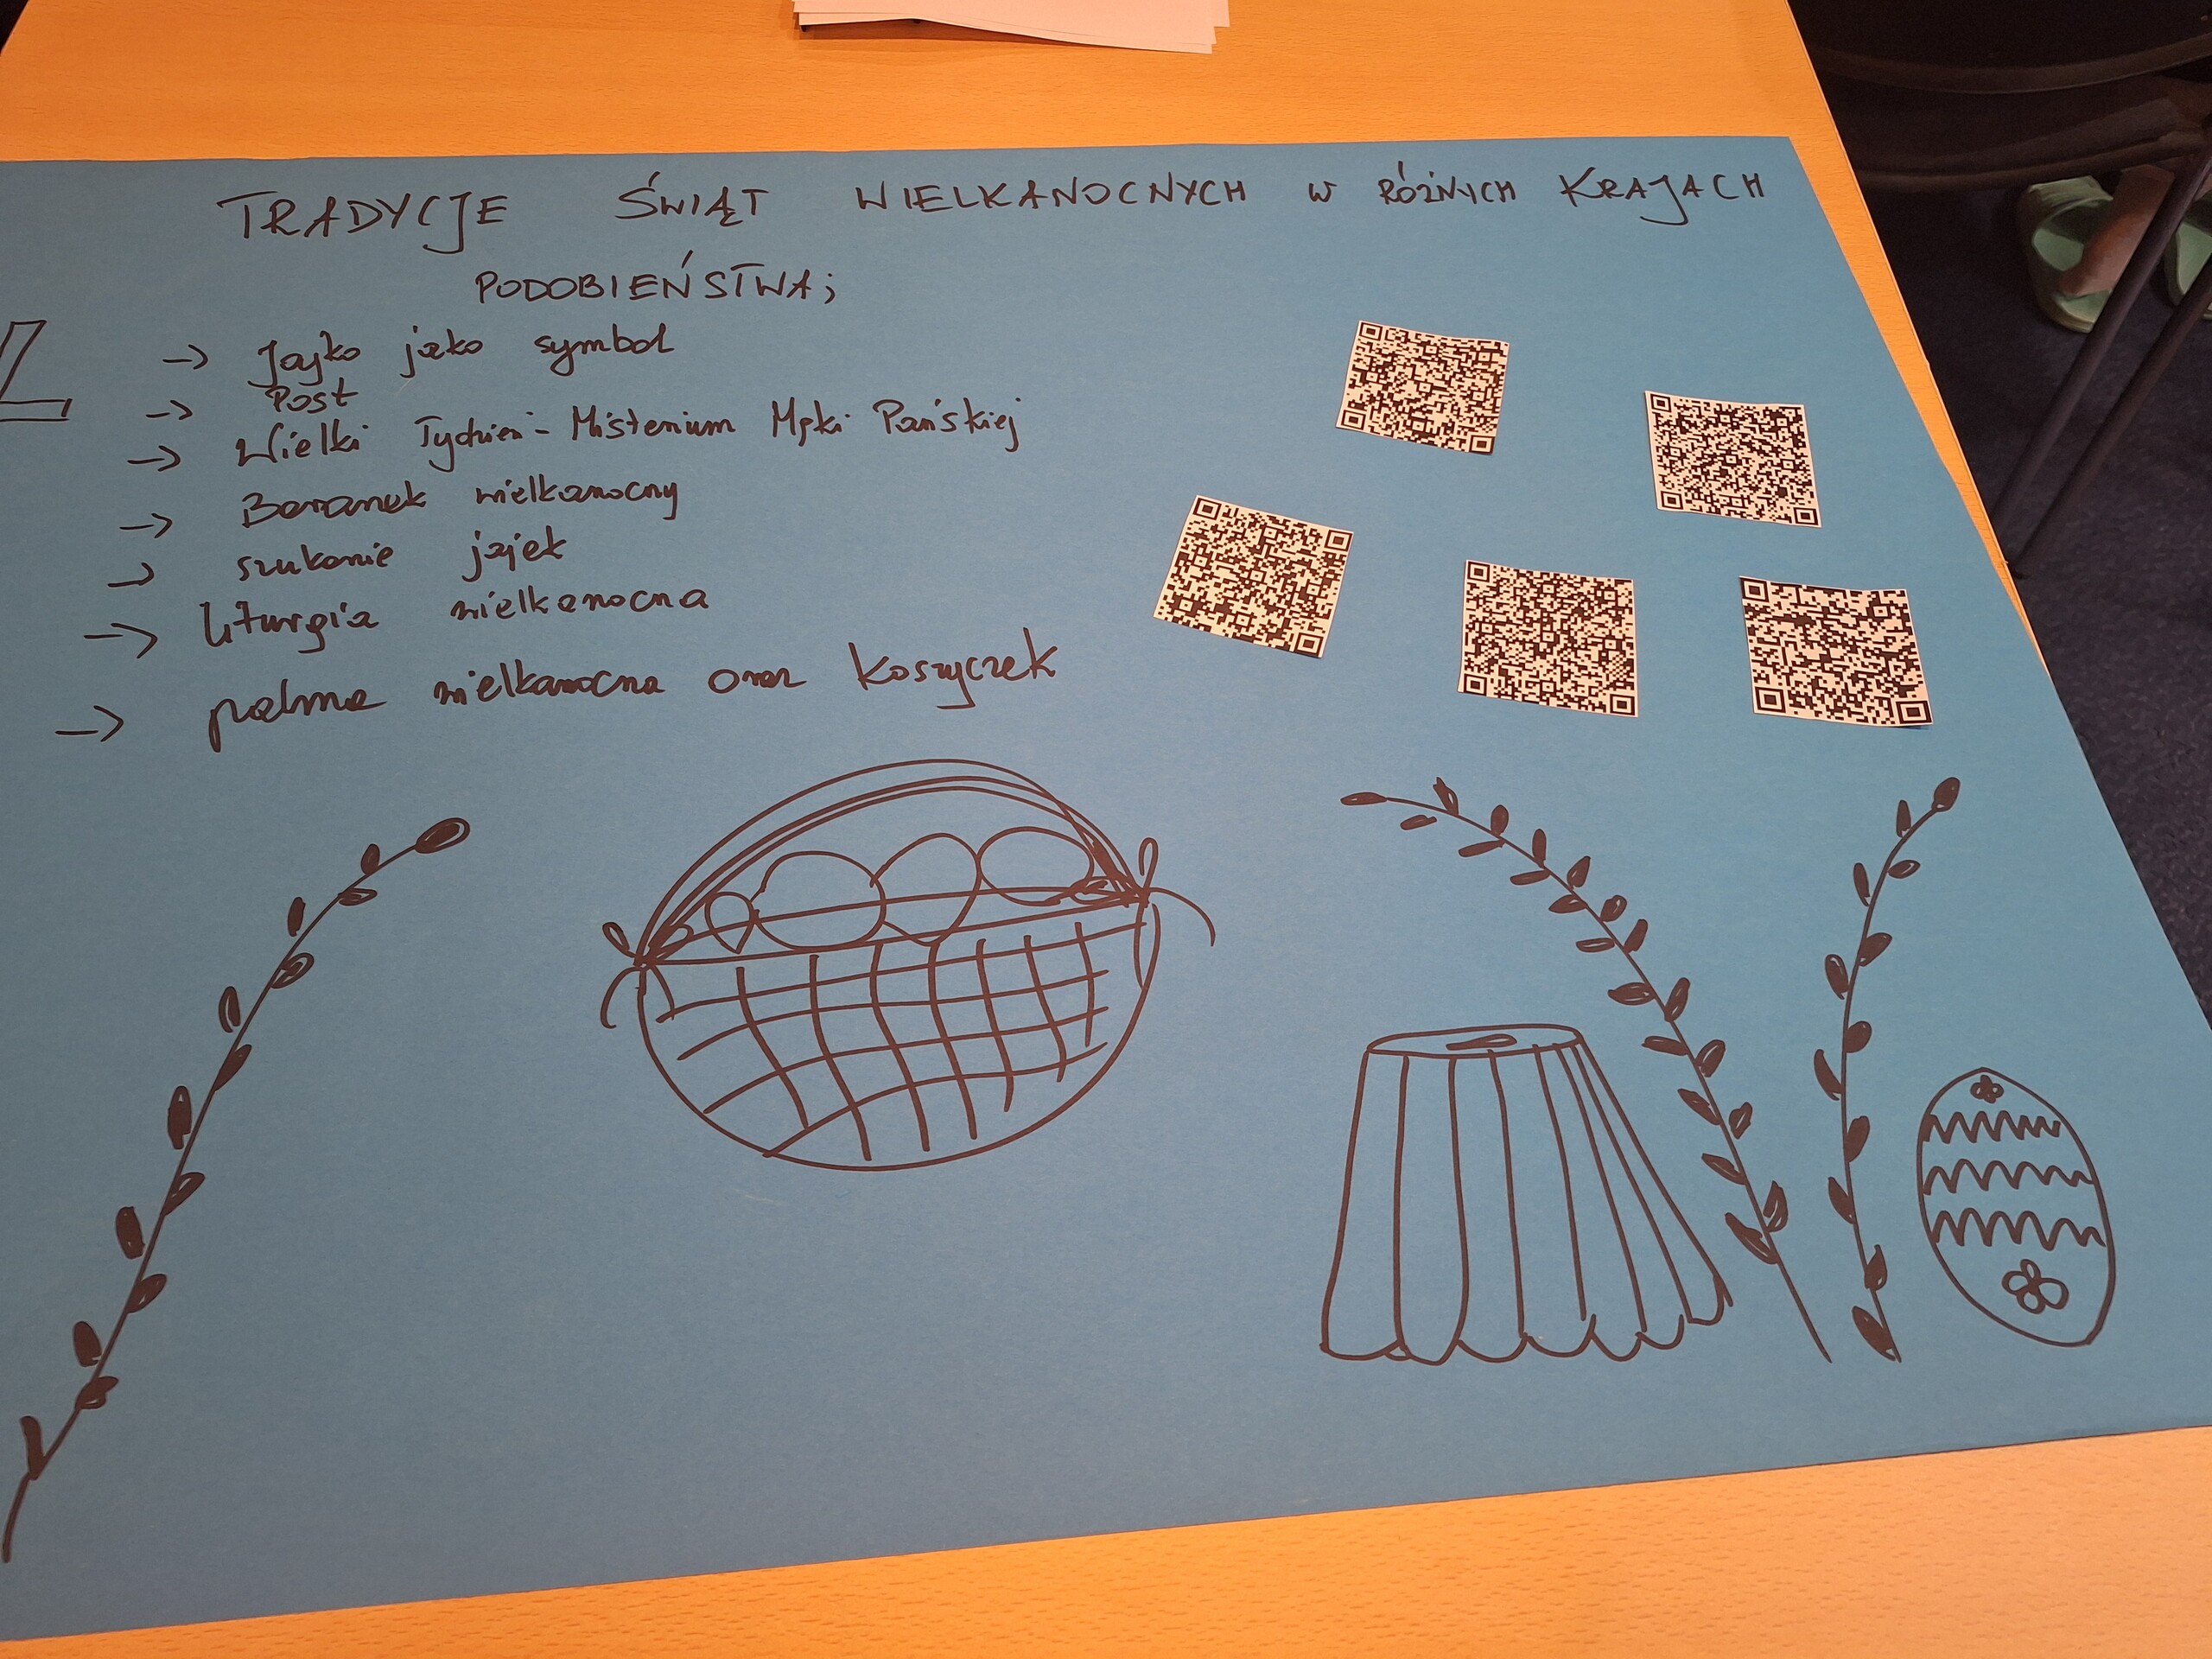 TRADYCJE ŚWIĄT WIELKANOCNYCH W RÓŻNYCH KRAJACH
PODOBIEŃSTWA;
L
-> Jajko jako symbol
-> Post
-> Wielki Tydzień - Misterium Męki Pańskiej
-> Baranek wielkanocny
-> szukanie jajek
-> liturgia wielkanocna
-> palma wielkanocna oraz koszyczek